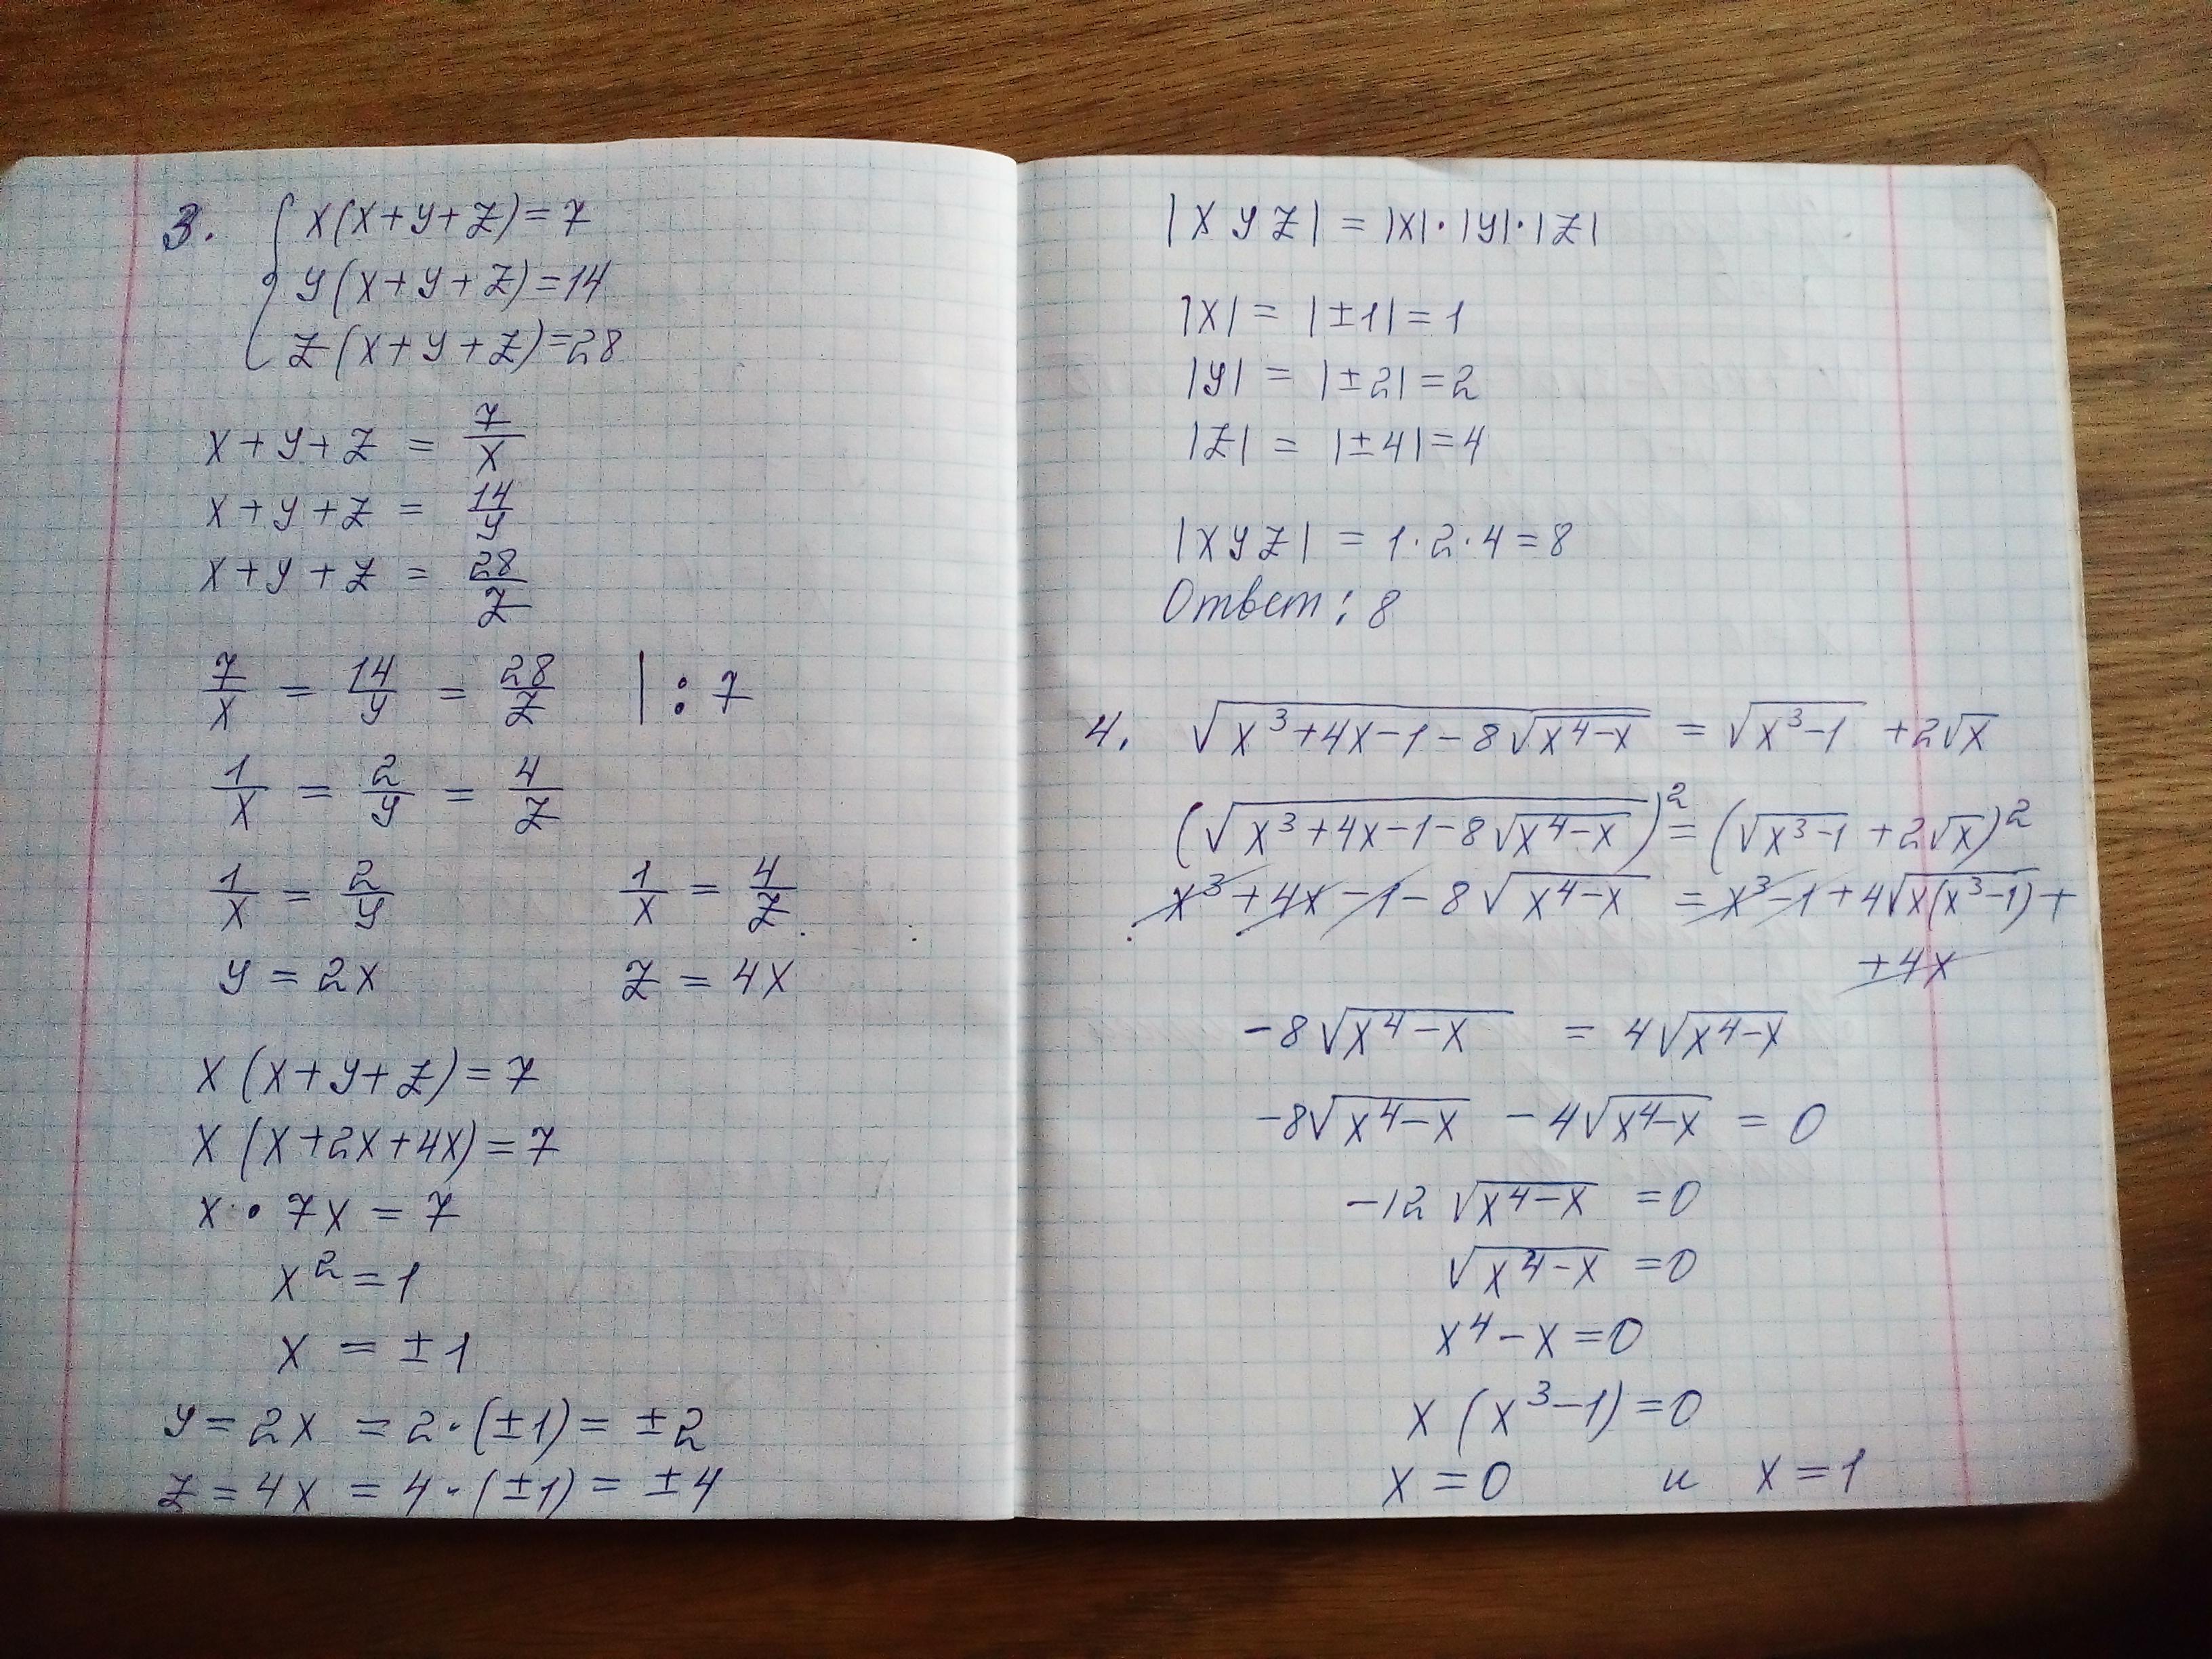 3. { x(x+y+z)=7
y(x+y+z)=14
z(x+y+z)=28
x+y+z = 7/x
x+y+z = 14/y
x+y+z = 28/z
7/x = 14/y = 28/z |:7
1/x = 2/y = 4/z
1/x = 2/y 1/x = 4/z
y = 2x z = 4x
x(x+y+z)=7
x(x+2x+4x)=7
x·7x=7
x²=1
x = ±1
y = 2x = 2·(±1) = ±2
z = 4x = 4·(±1) = ±4
|xyz| = |x|·|y|·|z|
|x| = |±1| = 1
|y| = |±2| = 2
|z| = |±4| = 4
|xyz| = 1·2·4=8
Ответ: 8
4. √(x³+4x-1-8√(x⁴-x)) = √(x³-1) + 2√x
(√(x³+4x-1-8√(x⁴-x)))² = (√(x³-1) + 2√x)²
x³+4x-1-8√(x⁴-x) = x³-1+4√(x(x³-1))+
+4x
-8√(x⁴-x) = 4√(x⁴-x)
-8√(x⁴-x) - 4√(x⁴-x) = 0
-12√(x⁴-x) = 0
√(x⁴-x) = 0
x⁴-x=0
x(x³-1)=0
x=0 и x=1